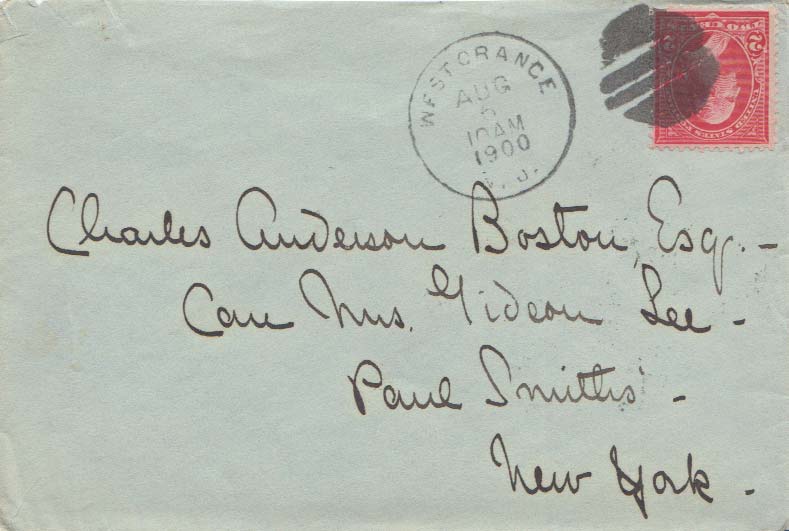 WEST ORANGE
AUG
5
10 AM
1900
N. J.
2
UNITED STATES
Charles Anderson Boston, Esq. -
Care Mrs. Gideon Lee -
Paul Smiths' -
New York -